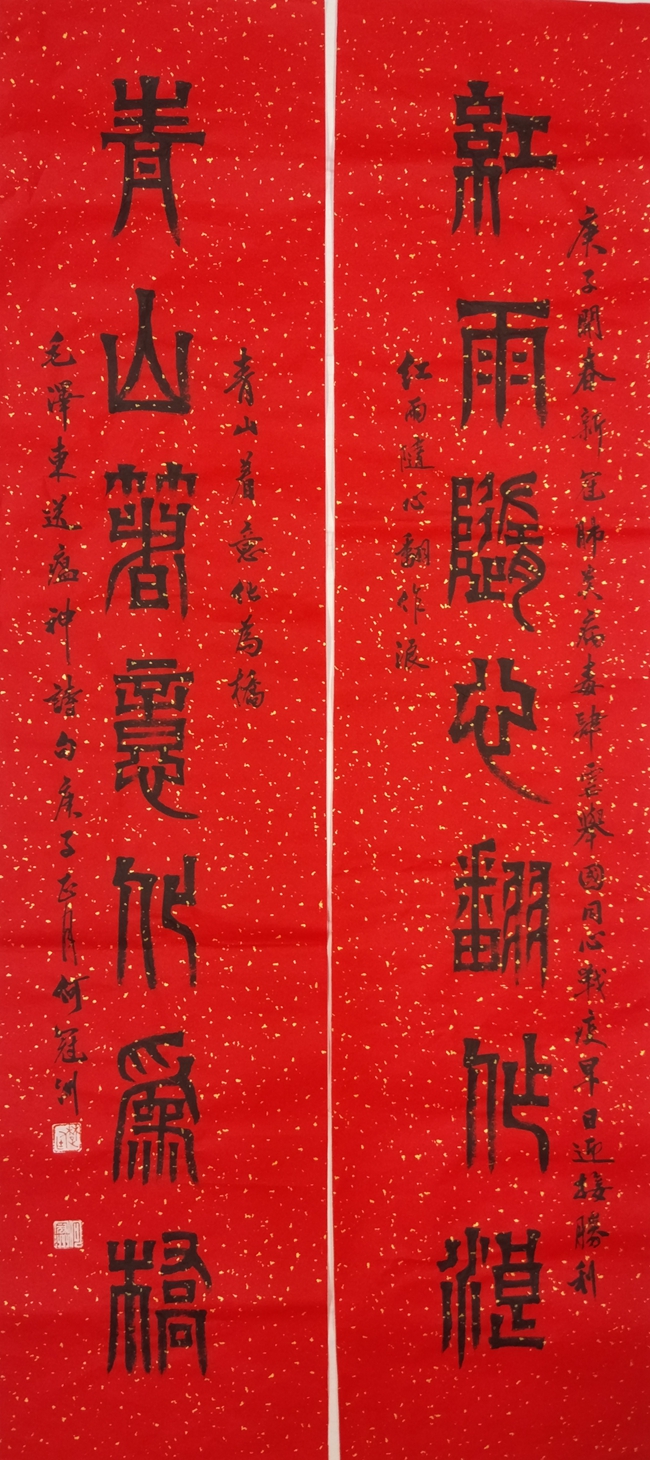 庚子開春新冠肺炎病毒肆虐舉國同心戰疫早日迎接勝利
紅雨隨心翻作浪
红雨隨心翻作浪
青山着意化為橋
青山著意化爲橋
毛澤東送瘟神詩句庚子正月何冠洲